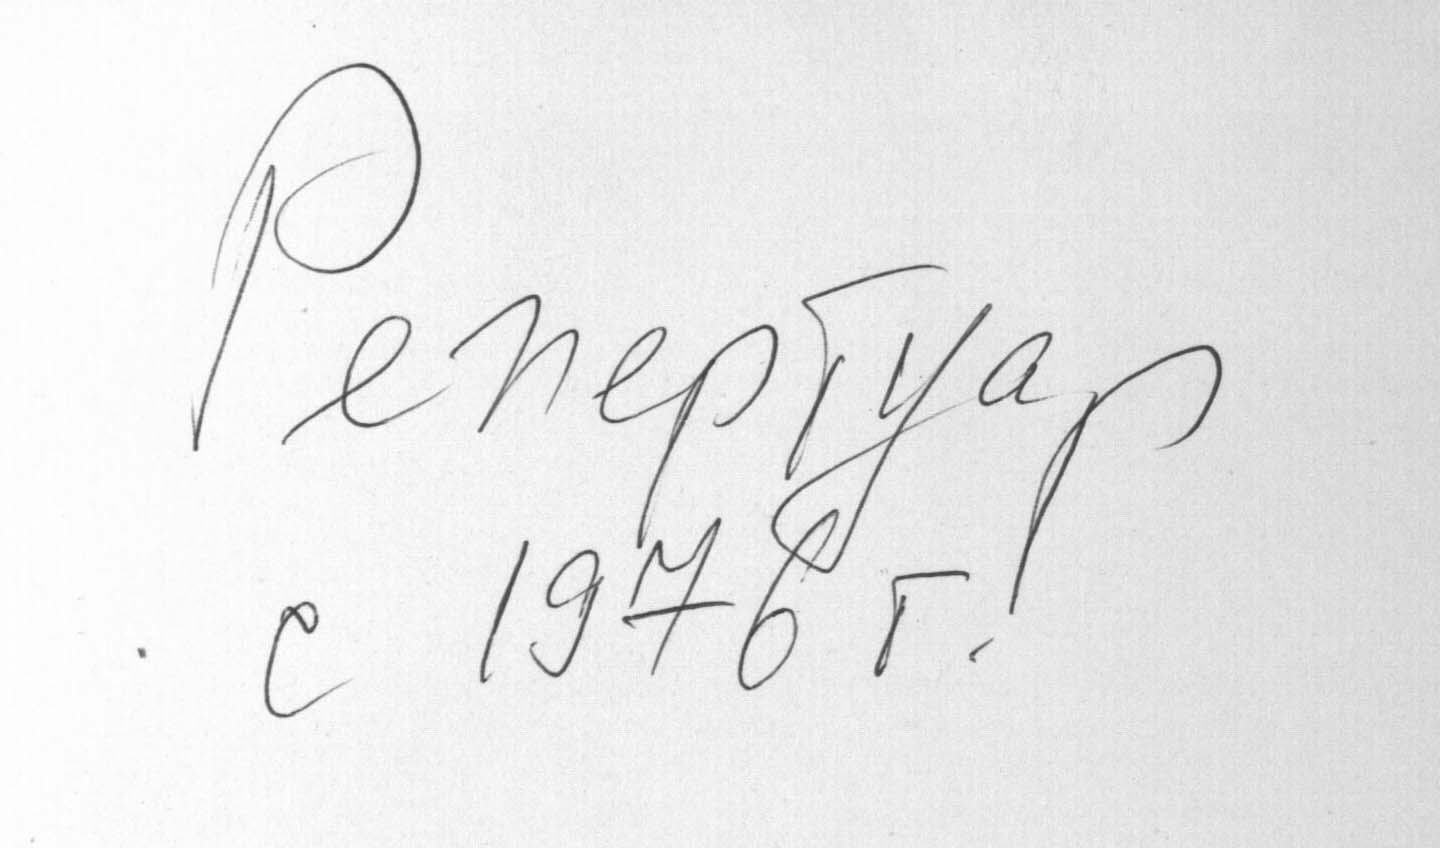 Репертуар
с 1976 г.